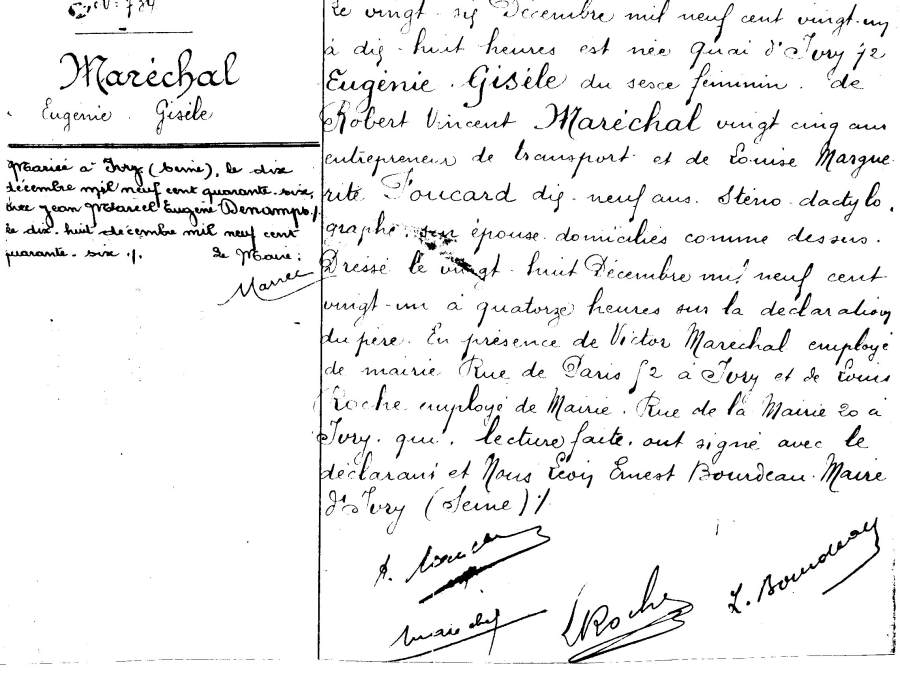 Maréchal
Eugénie Gisèle
Mariée à Ivry (Seine), le dix
décembre mil neuf cent quarante-six,
avec Jean Marcel Eugène Denamps ./.
Le dix-huit décembre mil neuf cent
quarante-six ./. Le Maire :
Le vingt-six Décembre mil neuf cent vingt-un
à dix-huit heures est née Quai d'Ivry 42
Eugénie Gisèle du sexe féminin. de
Robert Vincent Maréchal vingt cinq ans
entrepreneur de transport et de Louise Margue-
rite Foucard dix-neuf ans. Sténo-dactylo-
graphe, son épouse domiciliés comme dessus.
Dressé le vingt-huit Décembre mil neuf cent
vingt-un à quatorze heures sur la déclaration
du père. En présence de Victor Maréchal employé
de mairie Rue de Paris 52 à Ivry et de Louis
Roche employé de Mairie. Rue de la Mairie 20 à
Ivry. qui, lecture faite, ont signé avec le
déclarant et Nous Léon Ernest Bourdeau Maire
d'Ivry (Seine) ./.
LRoche
L. Bourdeau